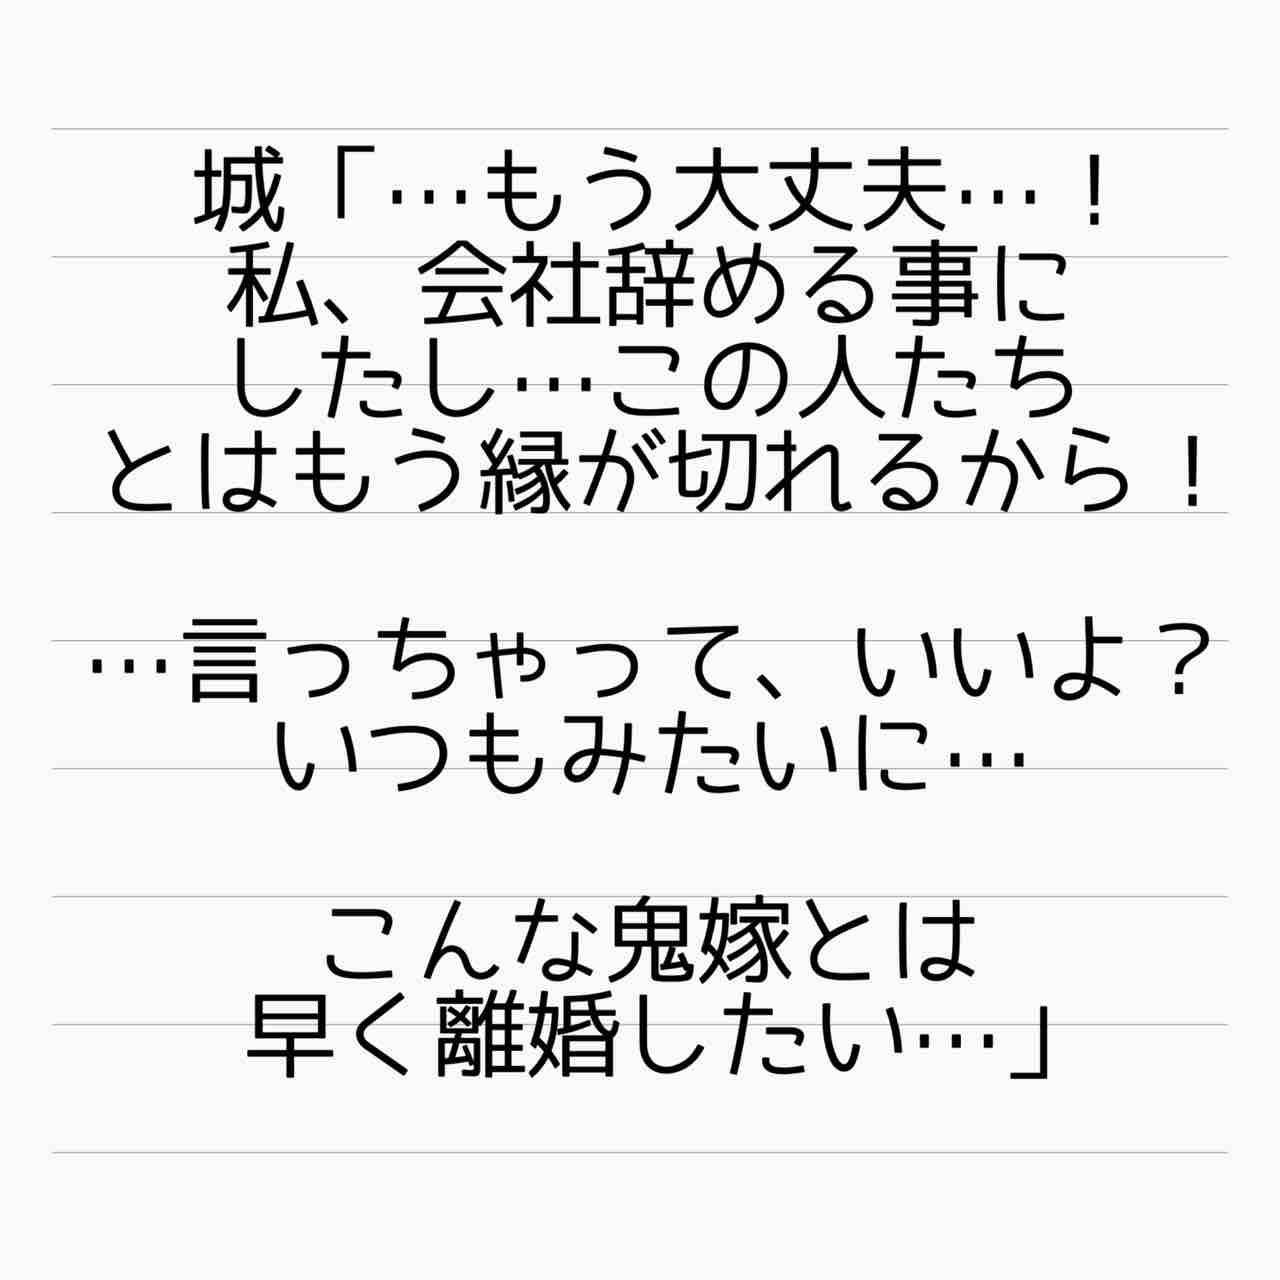 城「…もう大丈夫…！
私、会社辞める事に
したし…この人たち
とはもう縁が切れるから！
…言っちゃって、いいよ？
いつもみたいに…
こんな鬼嫁とは
早く離婚したい…」